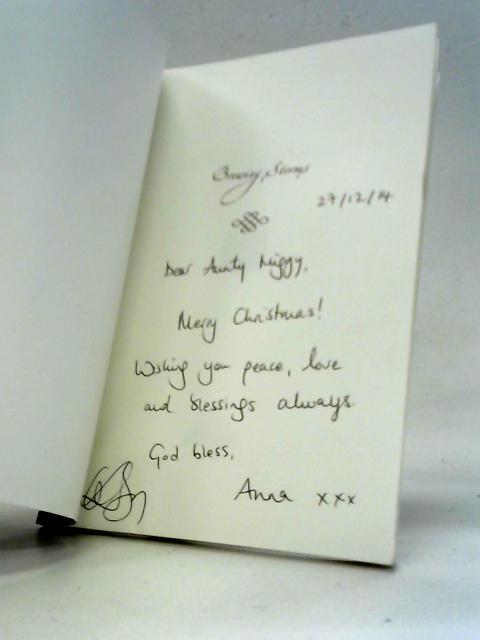 Braving Storms
27/12/14
Dear Aunty Miggy,
Merry Christmas!
Wishing you peace, love
and blessings always
God bless,
Anna xxx